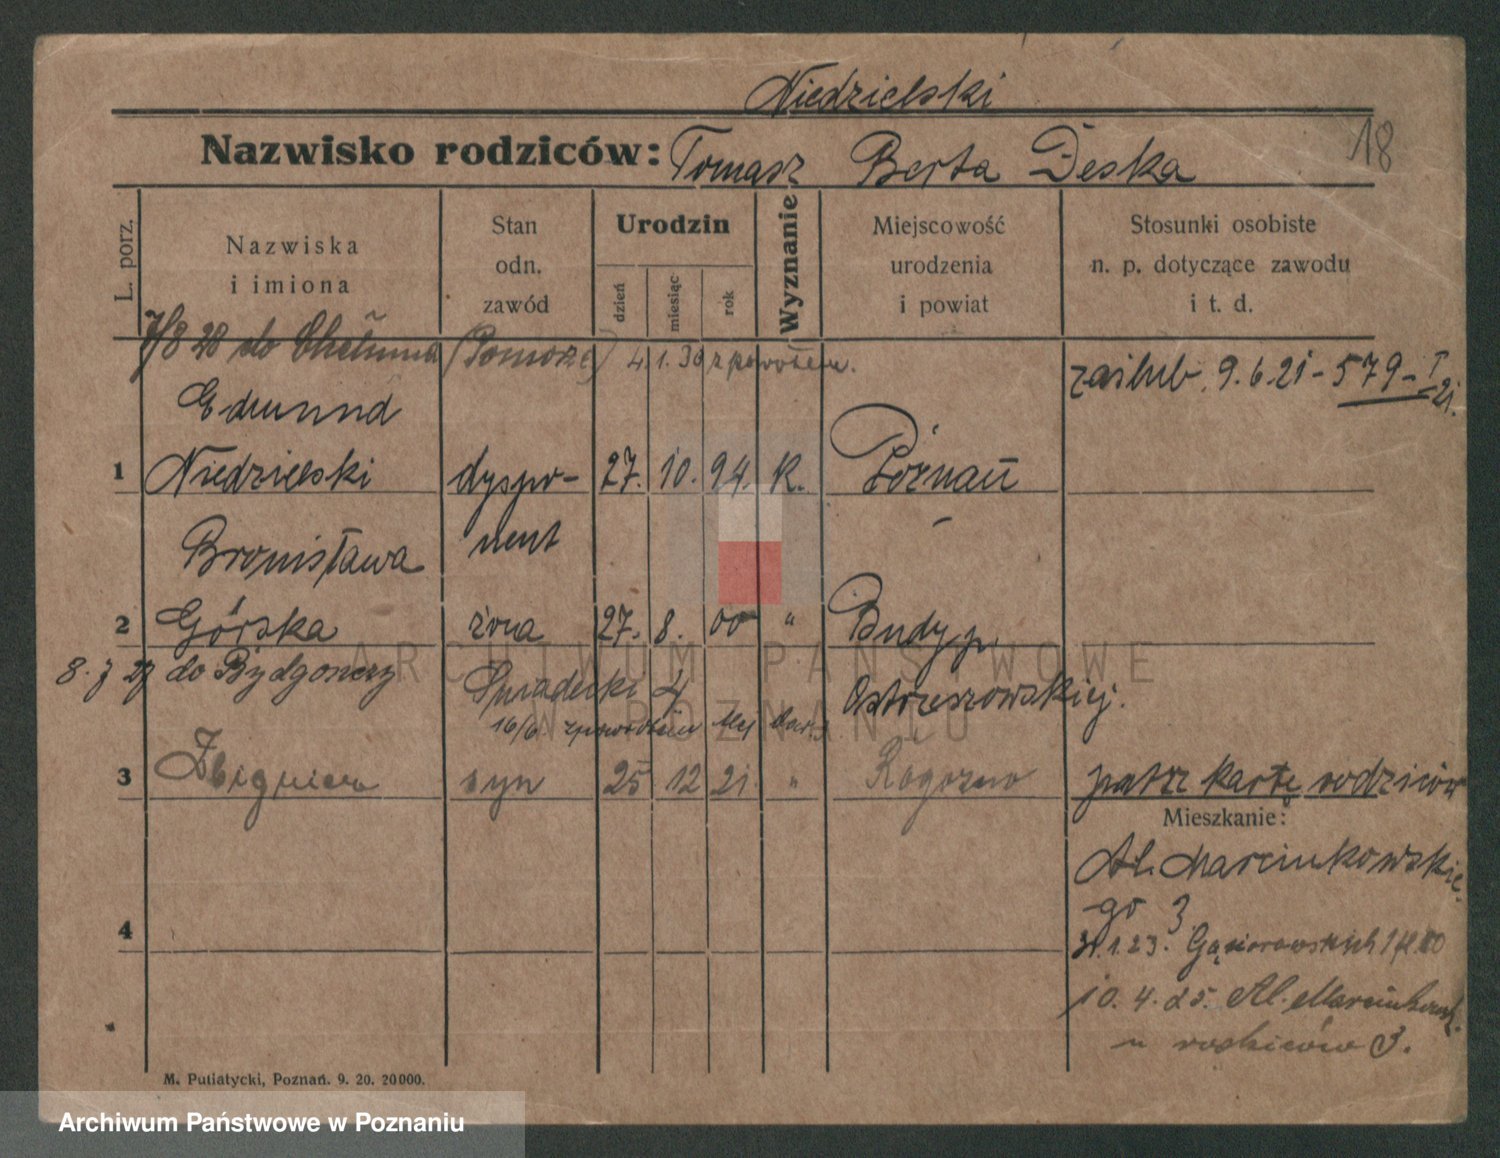 Niedzielski
Nazwisko rodziców: Tomasz Berta Deska
18
L. porz.
Nazwiska
i imiona
Stan
odn.
zawód
Urodzin
dzień
miesiąc
rok
Wyznanie
Miejscowość
urodzenia
i powiat
Stosunki osobiste
n. p. dotyczące zawodu
i t. d.
7/8 28 do Chełmna (Pomorze) 4.1.30 z powrotem.
zaślub. 9.6.21 - 579 - I
21.
Edmund
1 Niedzielski dyspo- 27. 10. 94. K. Poznań
nent
Bronisława
2 Górska żona 27. 8. 00 " Budy p.
8. 7 29 do Bydgoszczy Śniadecki 4 Ostrzeszowskiej.
16/6. z powrotem
3 Zbigniew syn 25 12 21. " Rogoźno patrz kartę rodziców
Mieszkanie:
Al. Marcinkowskie-
go 3
31.1.23. Gąsiorowskich
4
10.4.25. Al. Marcinkowsk.
u rodziców 3.
M. Putiatycki, Poznań. 9. 20. 20000.
ARCHIWUM PAŃSTWOWE
W POZNANIU
Archiwum Państwowe w Poznaniu